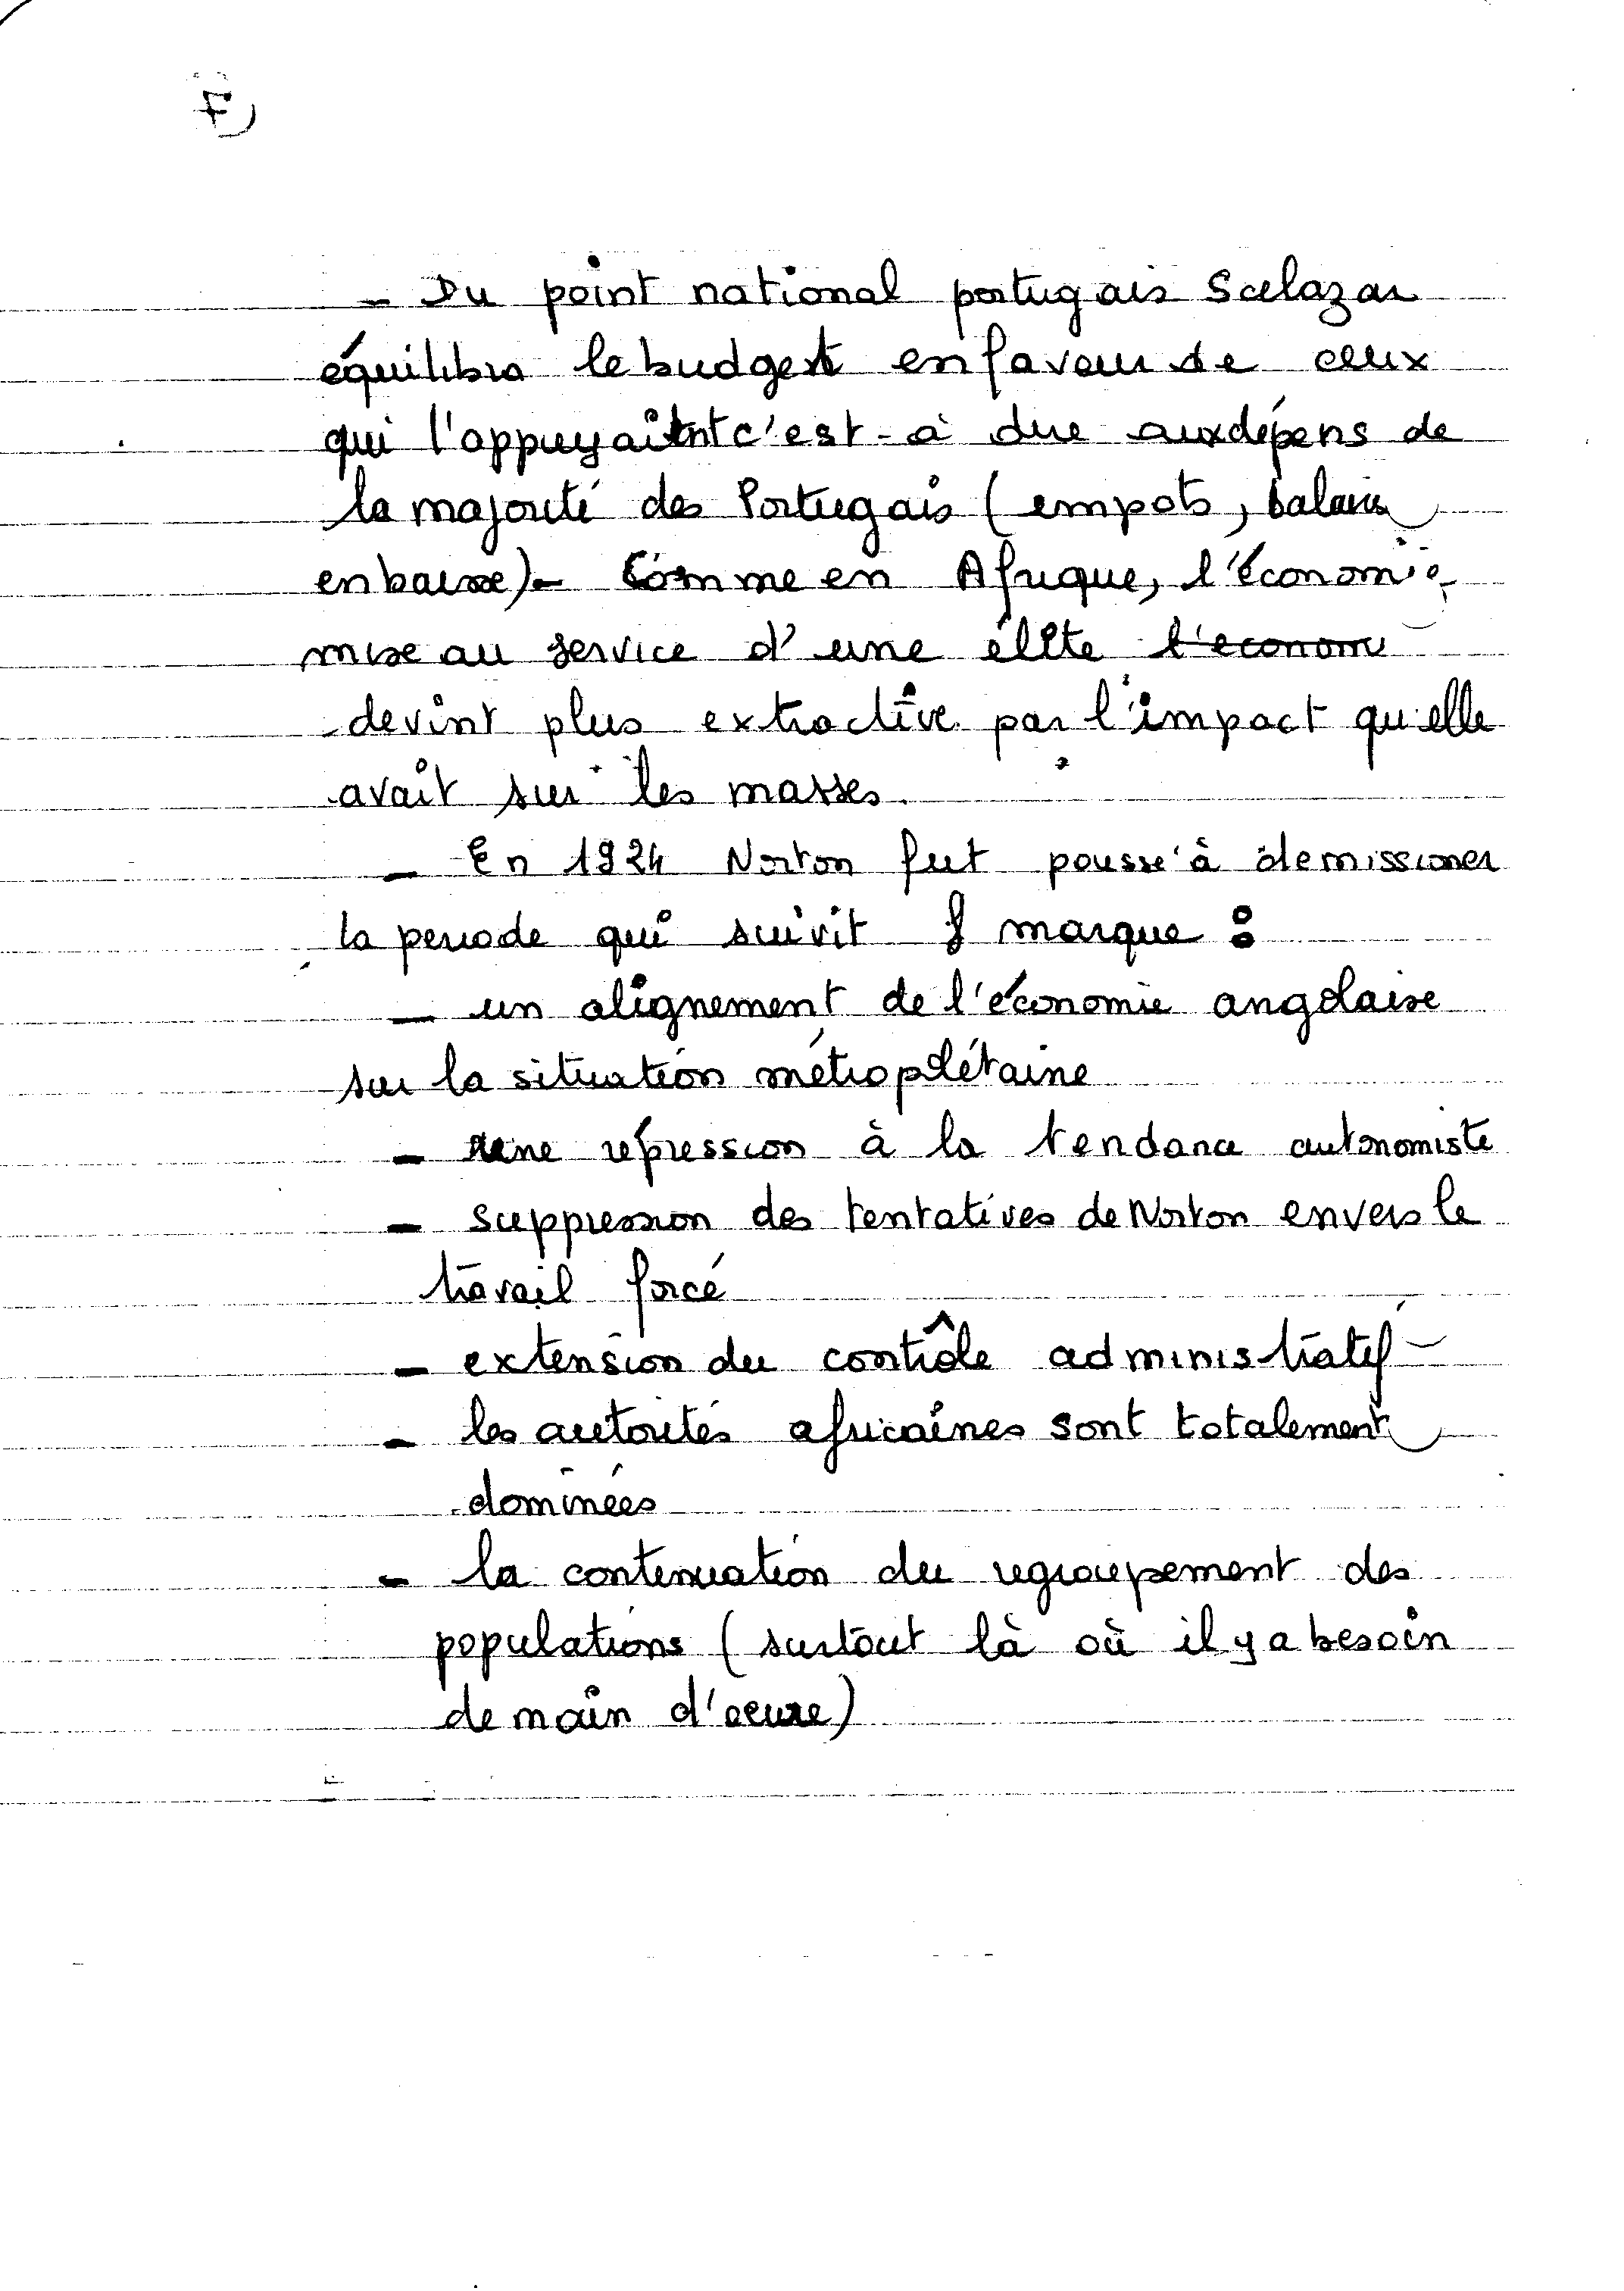 7)
- Du point national portugais Salazar
équilibra le budget en faveur de ceux
qui l'appuyaient c'est-à dire aux dépens de
la majorité des Portugais (impots, balance
en baisse). Comme en Afrique, l'économie
mise au service d'une élite l'econom
devint plus extractive par l'impact qu'elle
avait sur les masses.
- En 1924 Norton fut poussé à demissioner
la periode qui suivit marque :
- un alignement de l'économie angolaise
sur la situation métropolitaine
- une répression à la tendance autonomiste
- suppression des tentatives de Norton envers le
travail forcé
- extension du contrôle administratif
- les autorités africaines sont totalement
dominées
- la continuation du regroupement des
populations (surtout là où il y a besoin
de main d'oeuvre)